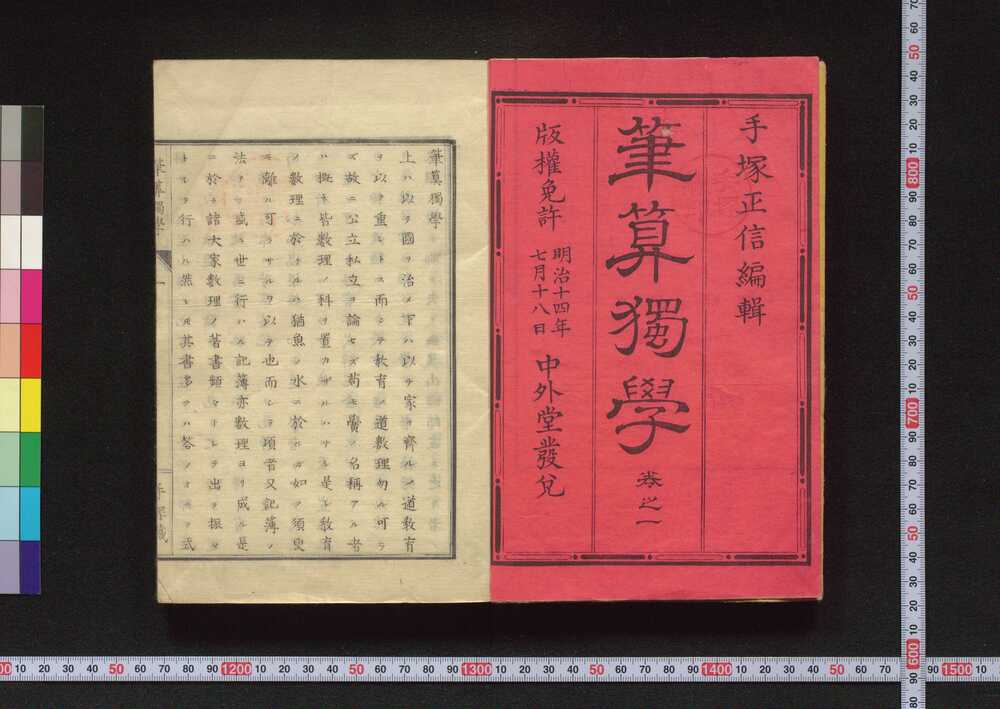 手塚正信編輯
筆算獨學
卷之一
版權免許
明治十四年
七月十八日
中外堂發兌
筆算獨學
上ハ以テ國ヲ治メ下ハ以テ家ヲ齊ルノ道教育
ヲ以テ重シトス而シテ教育ノ道數理勿ル可ラ
ズ故ニ公立私立ヲ論セズ苟モ黌ノ名稱アル者
ハ概シ皆數理ノ科ヲ置カザルハナシ是レ教育
ノ數理ニ於ケルハ猶魚ノ水ニ於ケルカ如ク須臾
モ離ル可ラサルヲ以テ也而シテ項者又記簿ノ
法ヲ盛ニ世ニ行ハル記簿亦數理ヨリ成ル是
ニ於テ諸大家數理ノ著書頻々トシテ出テ振
トシテ行ハル然レ𪜈其書多クハ答ノミニテ式
筆算獨學
一